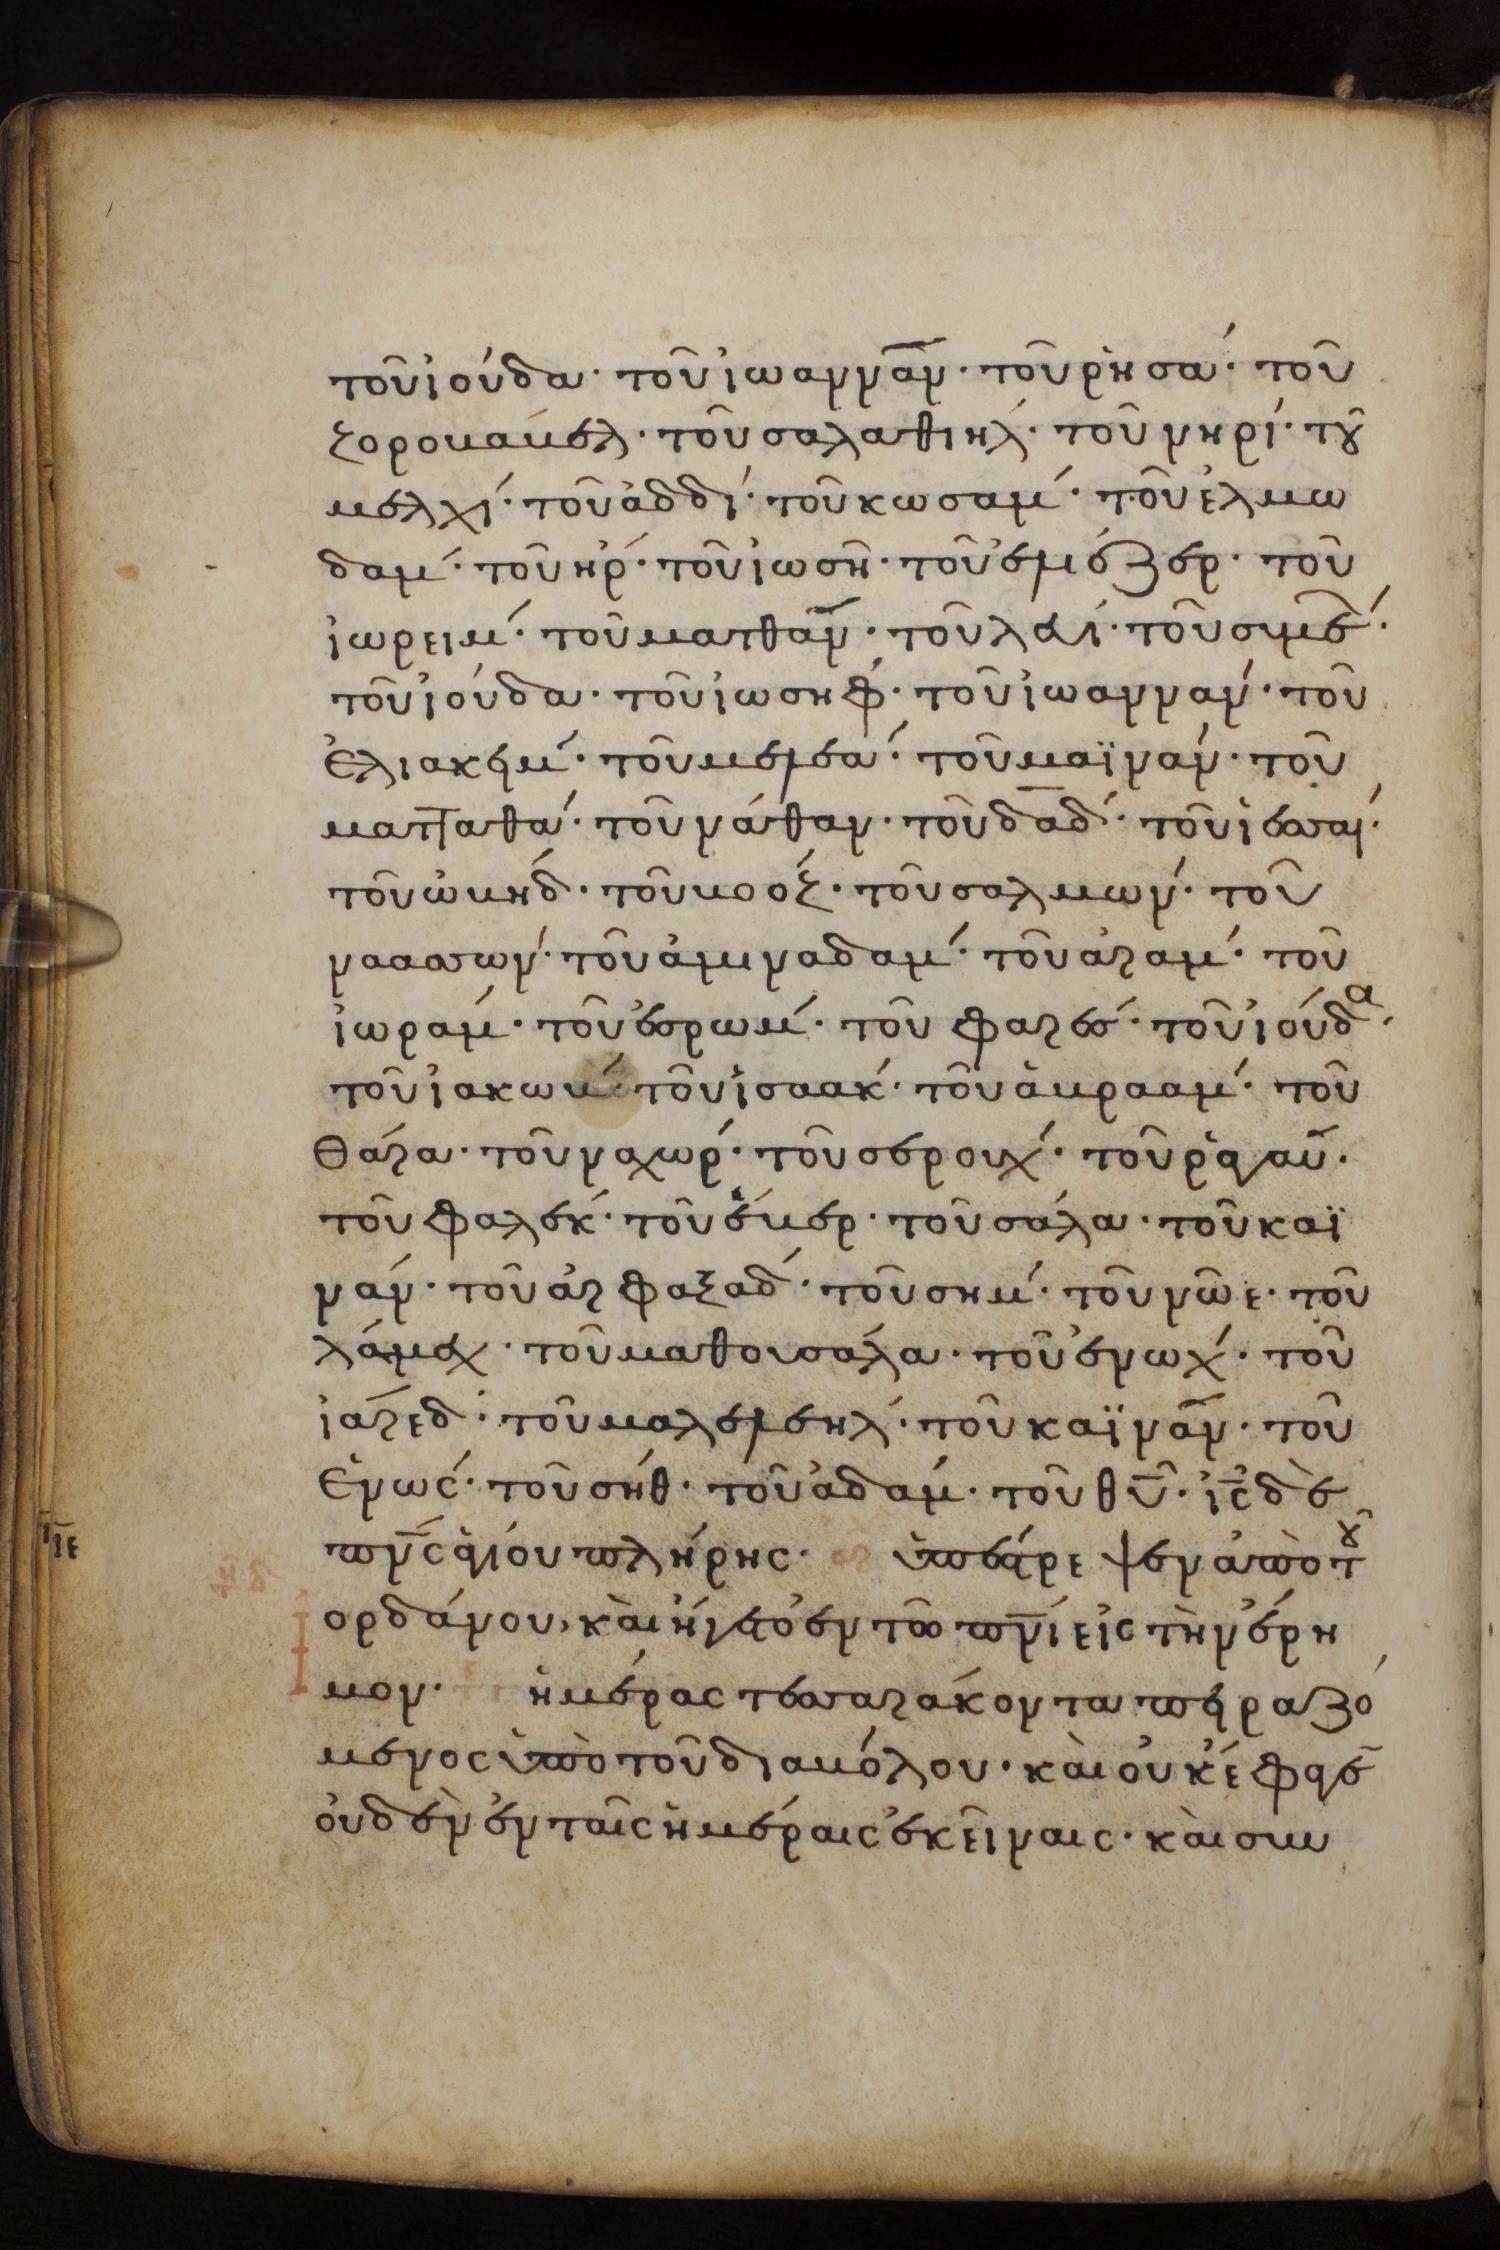 τοῦ ἰούδα· τοῦ ἰωαννᾶν· τοῦ ῥησά· τοῦ
ζοροβάβελ· τοῦ σαλαθιήλ· τοῦ νηρί· τοῦ
μελχί· τοῦ ἀδδί· τοῦ κωσάμ· τοῦ ἐλμω
δάμ· τοῦ ἤρ· τοῦ ἰωσῆ· τοῦ ἐλιέζερ· τοῦ
ἰωρείμ· τοῦ ματθᾶν· τοῦ λευί· τοῦ συμεών·
τοῦ ἰούδα· τοῦ ἰωσήφ· τοῦ ἰωαννάν· τοῦ
ἐλιακείμ· τοῦ μελεά· τοῦ μαϊνάν· τοῦ
ματταθά· τοῦ νάθαν· τοῦ δαδ· τοῦ ἰεσσαί·
τοῦ ὠβήδ· τοῦ βοόζ· τοῦ σαλμών· τοῦ
ναασσών· τοῦ ἀμιναδάμ· τοῦ ἀράμ· τοῦ
ἰωράμ· τοῦ ἐσρώμ· τοῦ φαρές· τοῦ ἰούδα·
τοῦ ἰακώβ· τοῦ ἰσαάκ· τοῦ ἀβραάμ· τοῦ
θάρα· τοῦ ναχώρ· τοῦ σερούχ· τοῦ ῥαγαῦ·
τοῦ φαλέκ· τοῦ ἕβερ· τοῦ σάλα· τοῦ καϊ
νάν· τοῦ ἀρφαξάδ· τοῦ σήμ· τοῦ νῶε· τοῦ
λάμεχ· τοῦ μαθουσάλα· τοῦ ἐνώχ· τοῦ
ἰάρεδ· τοῦ μαλελεήλ· τοῦ καϊνᾶν· τοῦ
ἐνώς· τοῦ σήθ· τοῦ ἀδάμ· τοῦ θυ· ις δὲ
πνς ἁγίου πλήρης· ὑπέστρεψεν ἀπὸ τοῦ
ιε
ορδάνου, καὶ ἤγετο ἐν τῶ πνι εἰς τὴν ἔρη
μον· ἡμέρας τεσσαράκοντα πειραζό
μενος ὑπὸ τοῦ διαβόλου· καὶ οὐκ ἔφαγεν
οὐδὲν ἐν ταῖς ἡμέραις ἐκείναις· καὶ συν